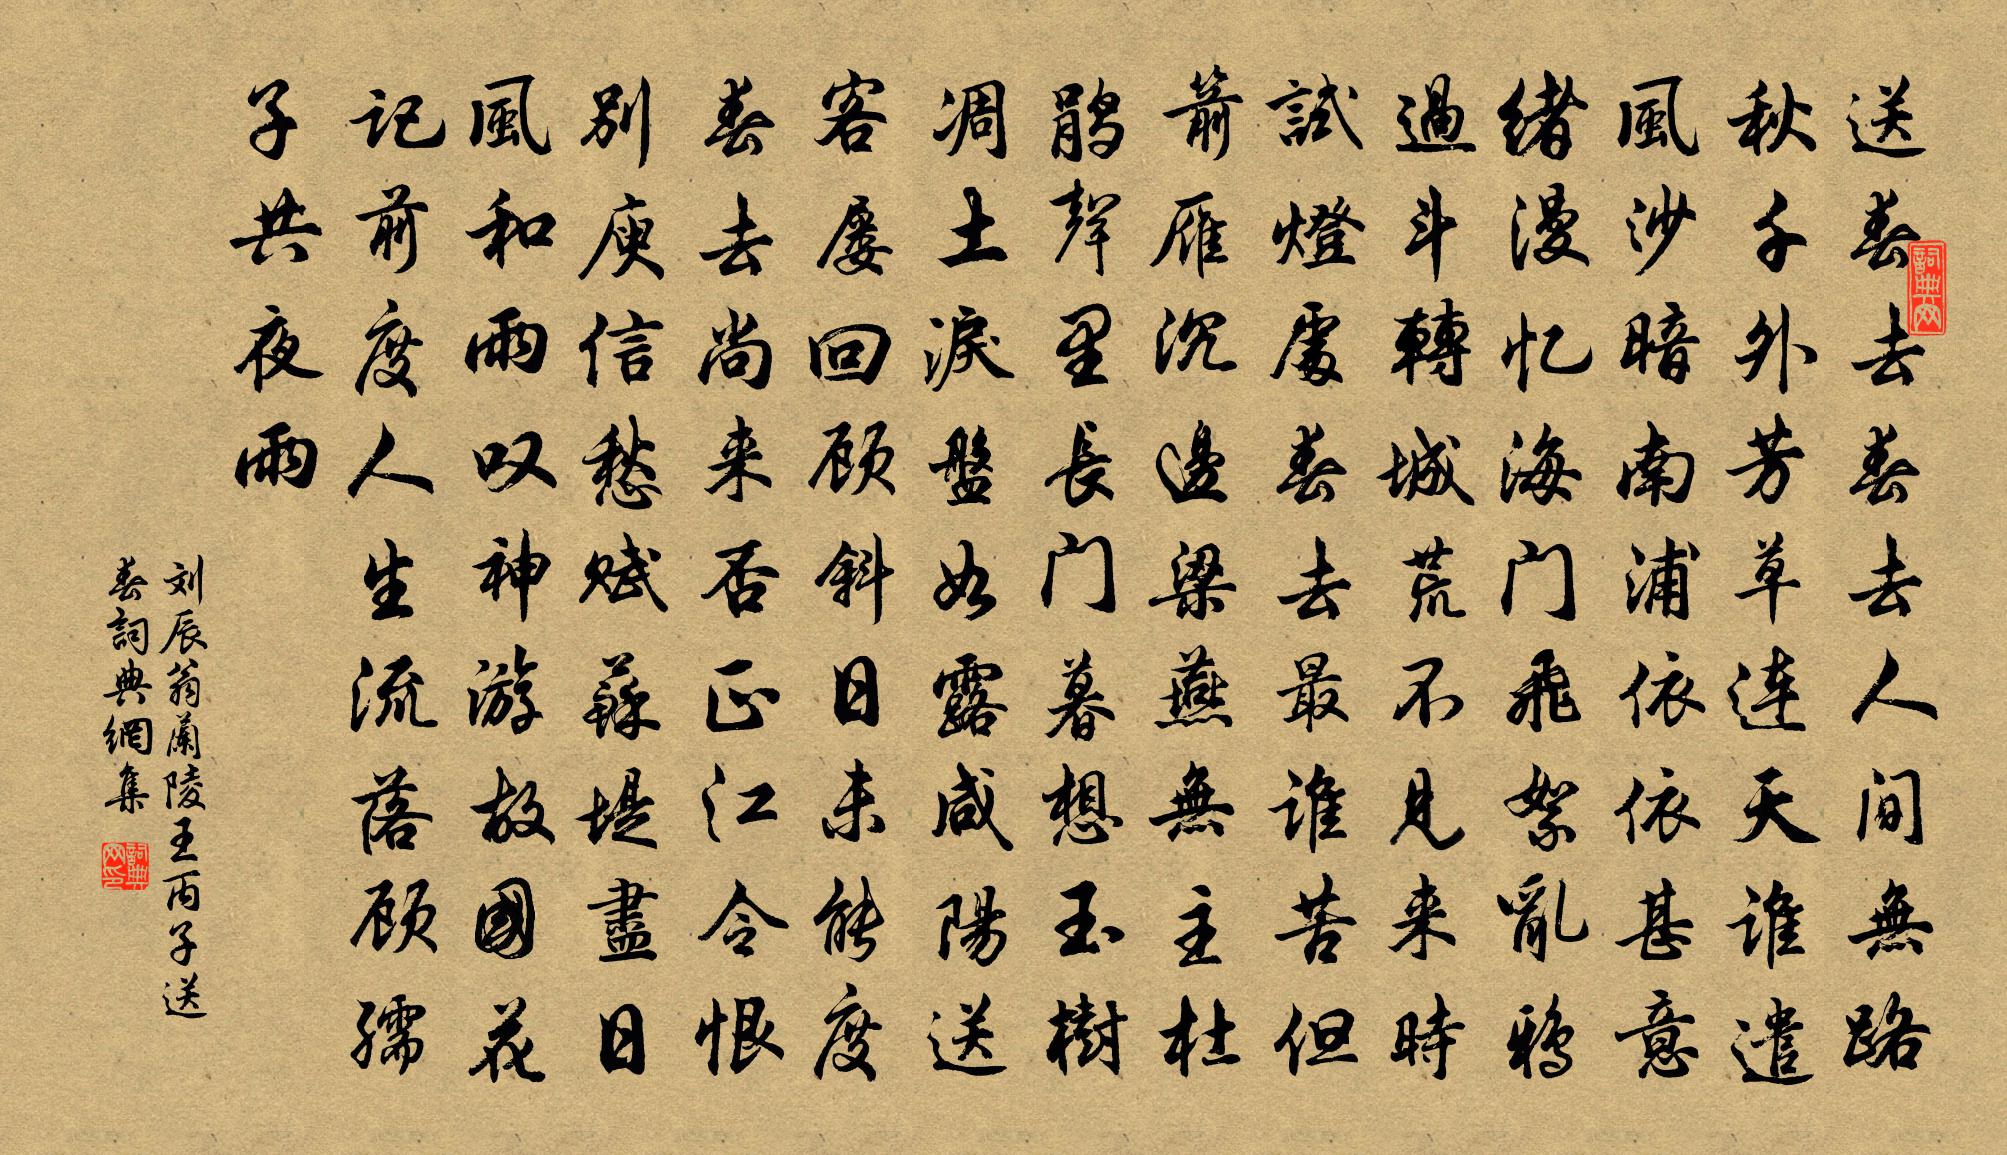 送春去春去人间無路
秋千外芳草连天谁遣
風沙暗南浦依依甚意
绪漫忆海门飛絮亂鸦
過斗轉城荒不見来時
試燈處春去最谁苦但
箭雁沉邊梁燕無主杜
鹃聲里長门暮想玉樹
凋土淚盤如露咸陽送
客屡回顾斜日未能度
春去尚来否正江令恨
别庾信愁赋蘇堤盡日
風和雨叹神游故國花
记前度人生流落顾孺
子共夜雨
刘辰翁蘭陵王丙子送
春詞典網集
詞典网
詞典网印